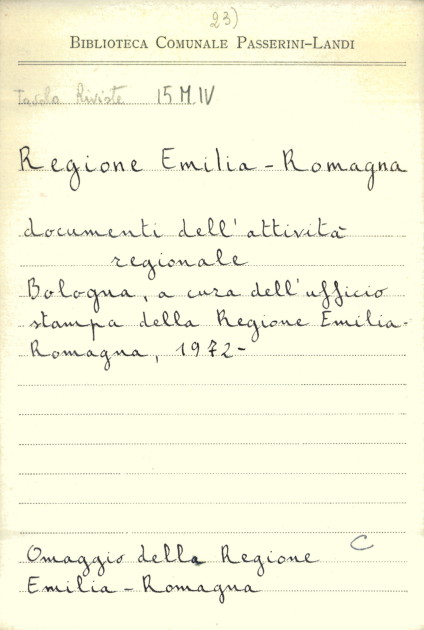 23)
BIBLIOTECA COMUNALE PASSERINI-LANDI
Tavolo Riviste 15.M.IV
Regione Emilia-Romagna
documenti dell'attività
regionale
Bologna, a cura dell'ufficio
stampa della Regione Emilia-
Romagna, 1972-
Omaggio della Regione C
Emilia-Romagna